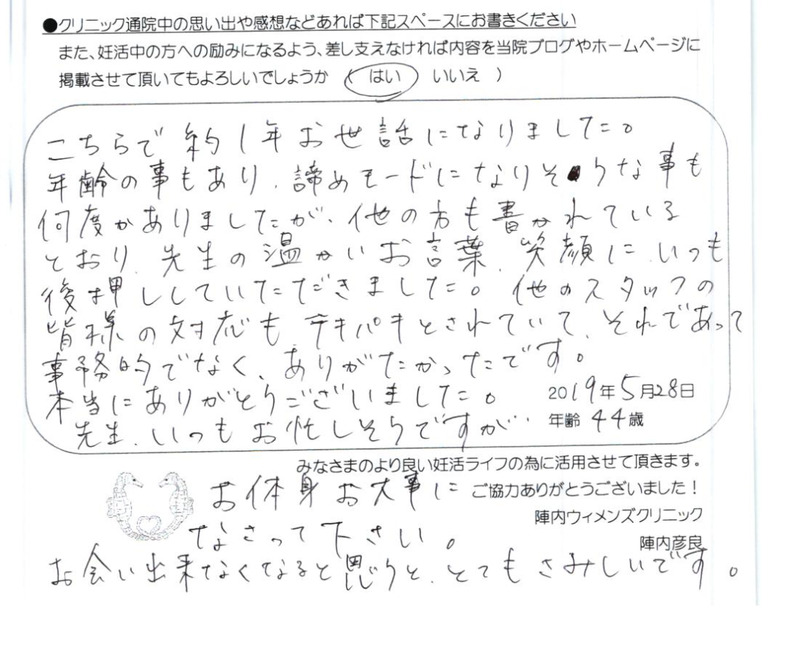 ●クリニック通院中の思い出や感想などあれば下記スペースにお書きください
また、妊活中の方への励みになるよう、差し支えなければ内容を当院ブログやホームページに
掲載させて頂いてもよろしいでしょうか （ はい　いいえ ）
こちらで約1年お世話になりました。
年齢の事もあり、諦めモードになりそうな事も
何度かありましたが、他の方も書かれている
とおり、先生の温かいお言葉、笑顔に、いつも
後押ししていただきました。他のスタッフの
皆様の対応も、テキパキとされていて、それであって
事務的でなく、ありがたかったです。
本当にありがとうございました。
2019年5月28日
先生、いつもお忙しそうですが‥
年齢 44歳
みなさまのより良い妊活ライフの為に活用させて頂きます。
お体身お大事に
ご協力ありがとうございました！
なさって下さい。
陣内ウィメンズクリニック
陣内彦良
お会い出来なくなると思うと、とてもさみしいです。